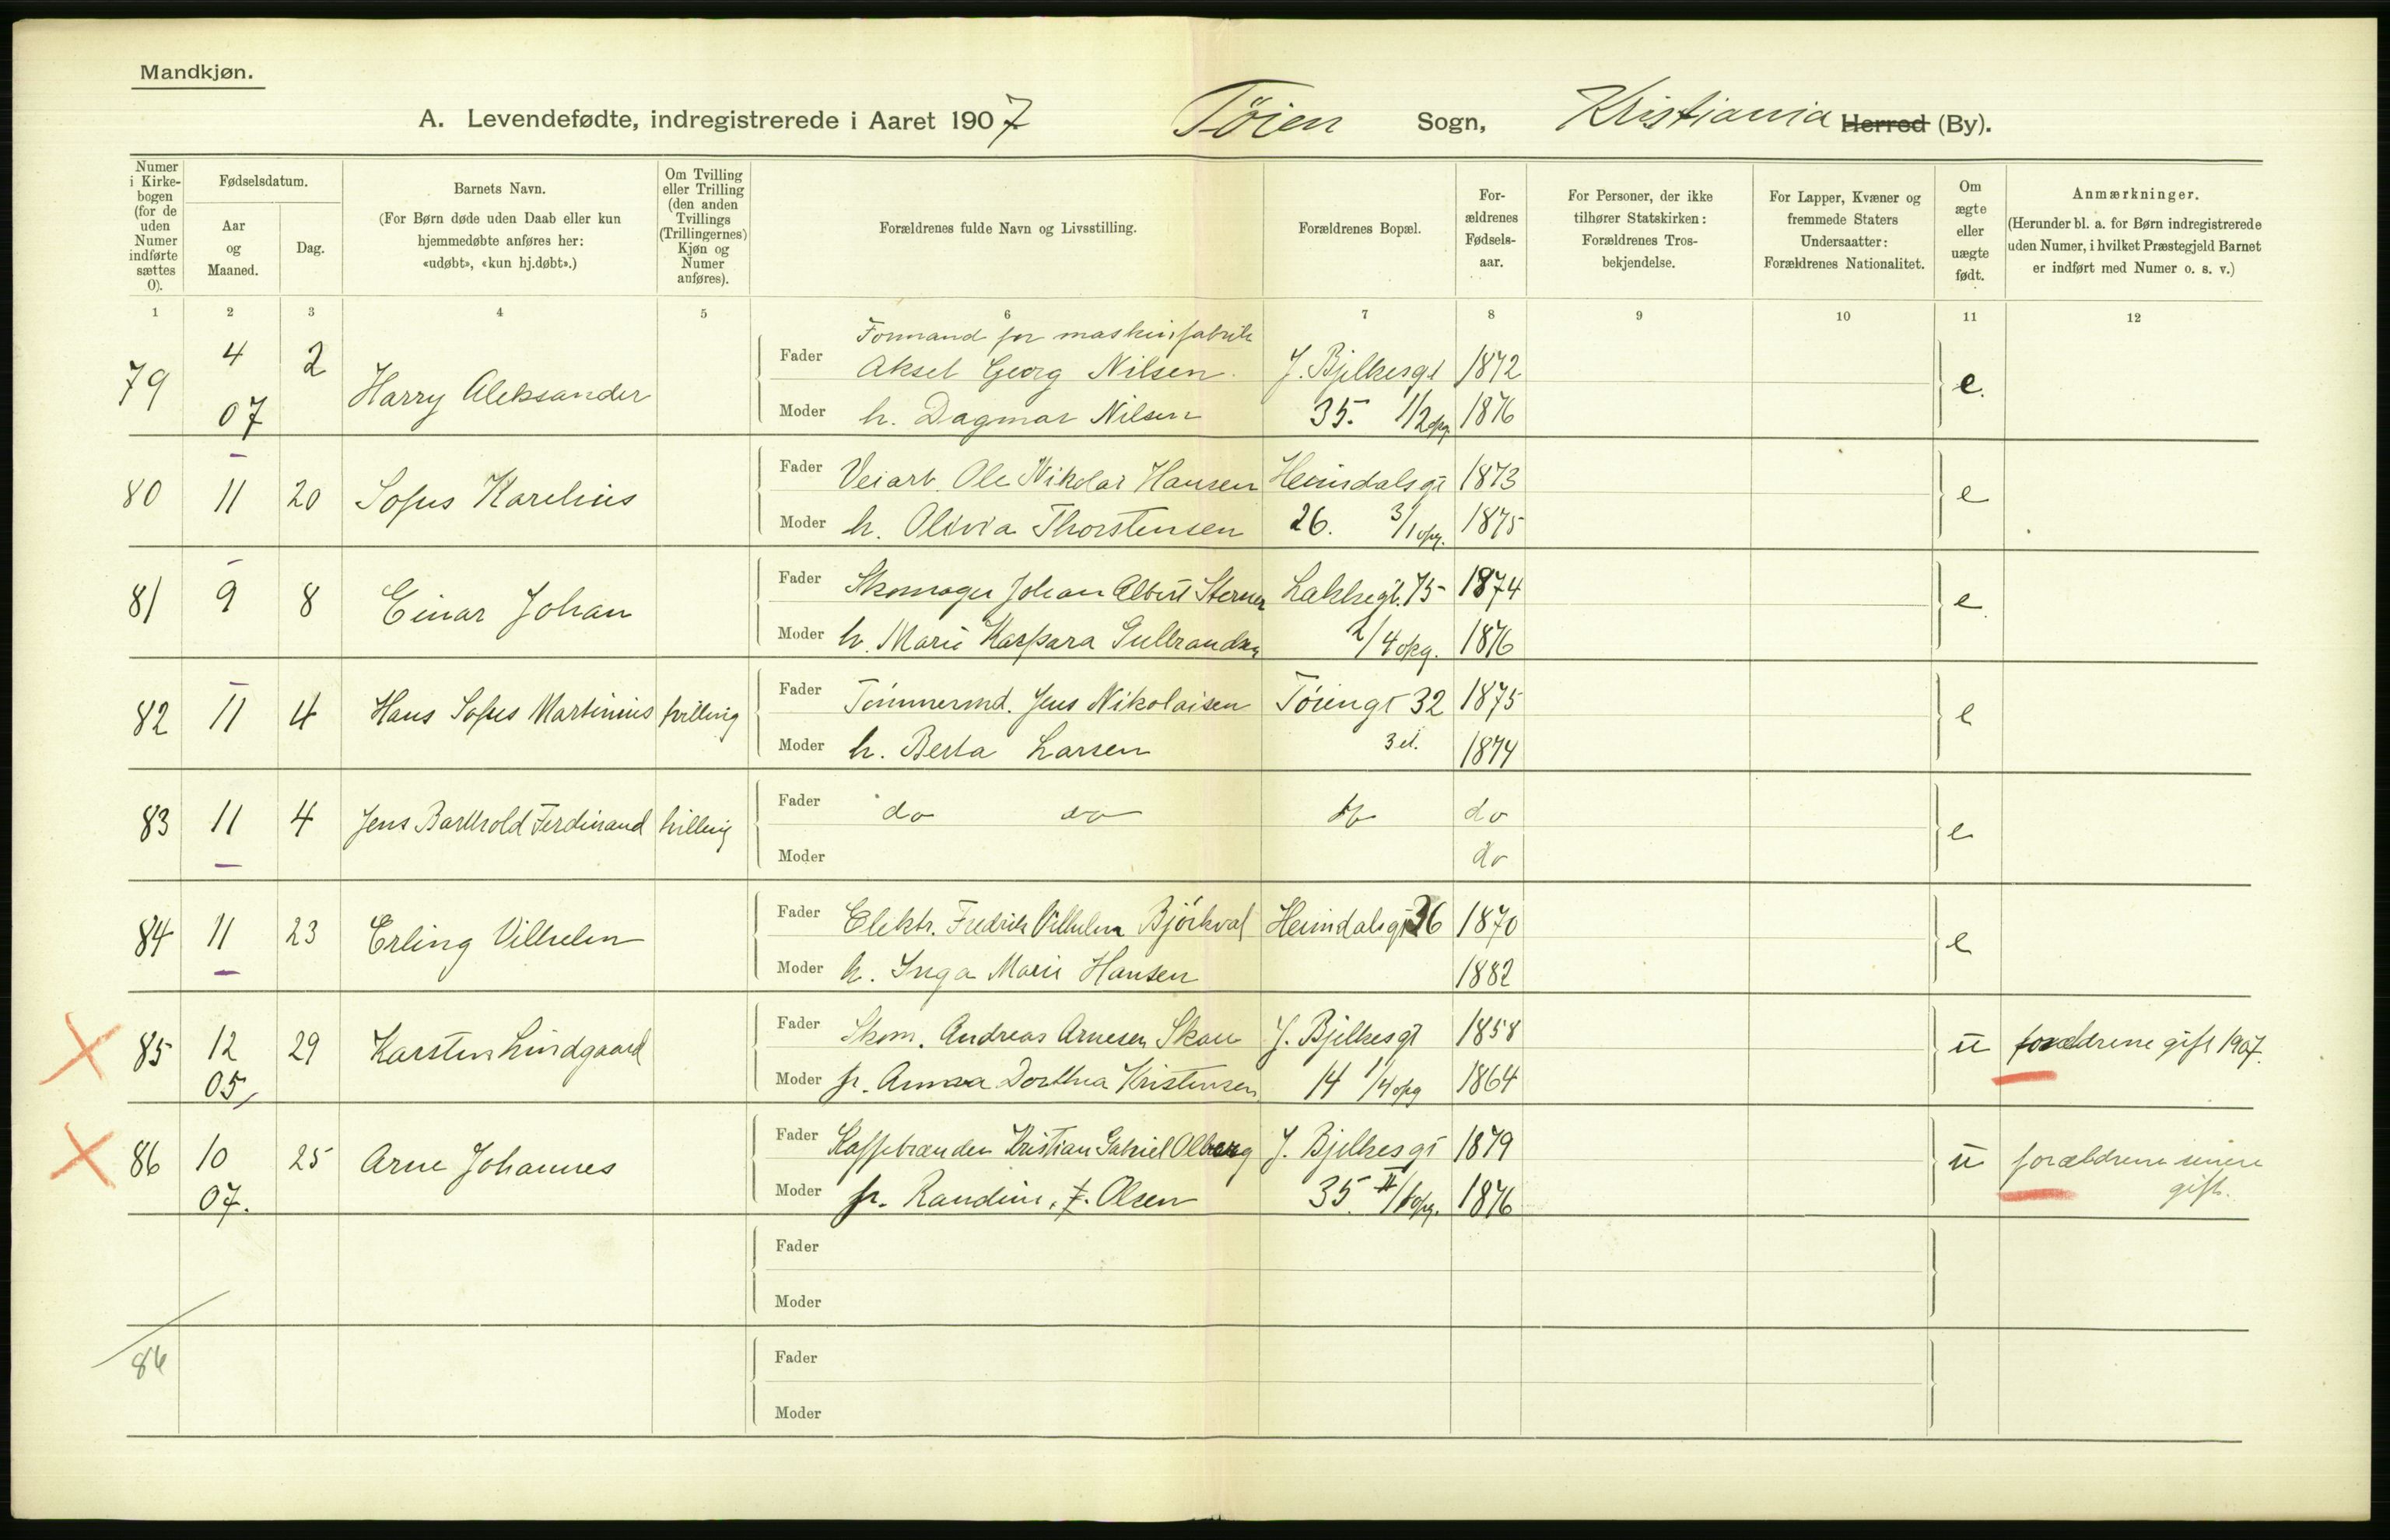 Mandkjøn.
A. Levendefødte, indregistrerede i Aaret 1907 Tøien Sogn, Kristiania Herred (By).
Numer i Kirke-bogen (for de uden Numer indførte sættes 0).
Fødselsdatum.
Aar og Maaned.
Dag.
Barnets Navn.
(For Børn døde uden Daab eller kun hjemmedøbte anføres her: «udøbt», «kun hj.døbt».)
Om Tvilling eller Trilling (den anden Tvillings (Trillingernes) Kjøn og Numer anføres).
Forældrenes fulde Navn og Livsstilling.
Forældrenes Bopæl.
For-ældrenes Fødsels-aar.
For Personer, der ikke tilhører Statskirken: Forældrenes Tros-bekjendelse.
For Lapper, Kvæner og fremmede Staters Undersaatter: Forældrenes Nationalitet.
Om ægte eller uægte født.
Anmærkninger.
(Herunder bl. a. for Børn indregistrerede uden Numer, i hvilket Præstegjeld Barnet er indført med Numer o. s. v.)
1 2 3 4 5 6 7 8 9 10 11 12
Formand for maskinfabrik
79 4 07 2 Harry Aleksander Fader Aksel Georg Nilsen. J. Bjelkesgt 1872 e.
Moder h. Dagmar Nilsen 35. 1/2 opg. 1876
80 11 20 Sofus Karelius Fader Veiarb. Ole Nikolai Hansen Heimdalsgt 1873 e
Moder h. Olivia Thorstensen 26. 3/1 opg. 1875
81 9 8 Einar Johan Fader Skomager Johan Albert Sterner Lakkegt. 75 1874 e
Moder h. Marie Kaspara Gulbrandsen 2/4 opg. 1876
82 11 4 Hans Sofus Martinius tvilling Fader Tømmermd. Jens Nikolaisen Tøiengt 32 1875 e
Moder h. Berta Larsen 3 et. 1874
83 11 4 Jens Barthold Ferdinand tvilling Fader do do do do e
Moder do
84 11 23 Erling Vilhelm Fader Elektr. Fredrik Vilhelm Bjørkval Heimdalsgt 36 1870 e
Moder h. Inga Marie Hansen 1882
85 12 05 29 Karsten Lindgaard Fader Skom. Andreas Arnesen Skau J. Bjelkesgt 1858 u forældrene gift 1907.
Moder fr. Anna Dorthea Kristensen 14 1/4 opg 1864
86 10 07. 25 Arne Johannes Fader Kaffebrænder Kristian Gabriel Olberg J. Bjelkesgt 1879 u forældrene senere gift.
Moder fr. Randine, F. Olsen 35. II/1 opg. 1876
Fader
Moder
86
Fader
Moder